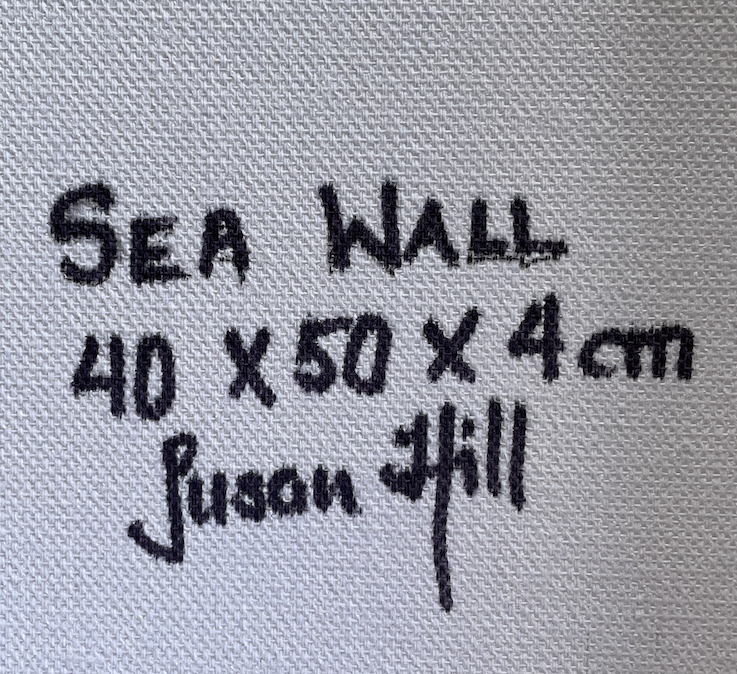 SEA WALL
40 X 50 X 4cm
Susan Hill